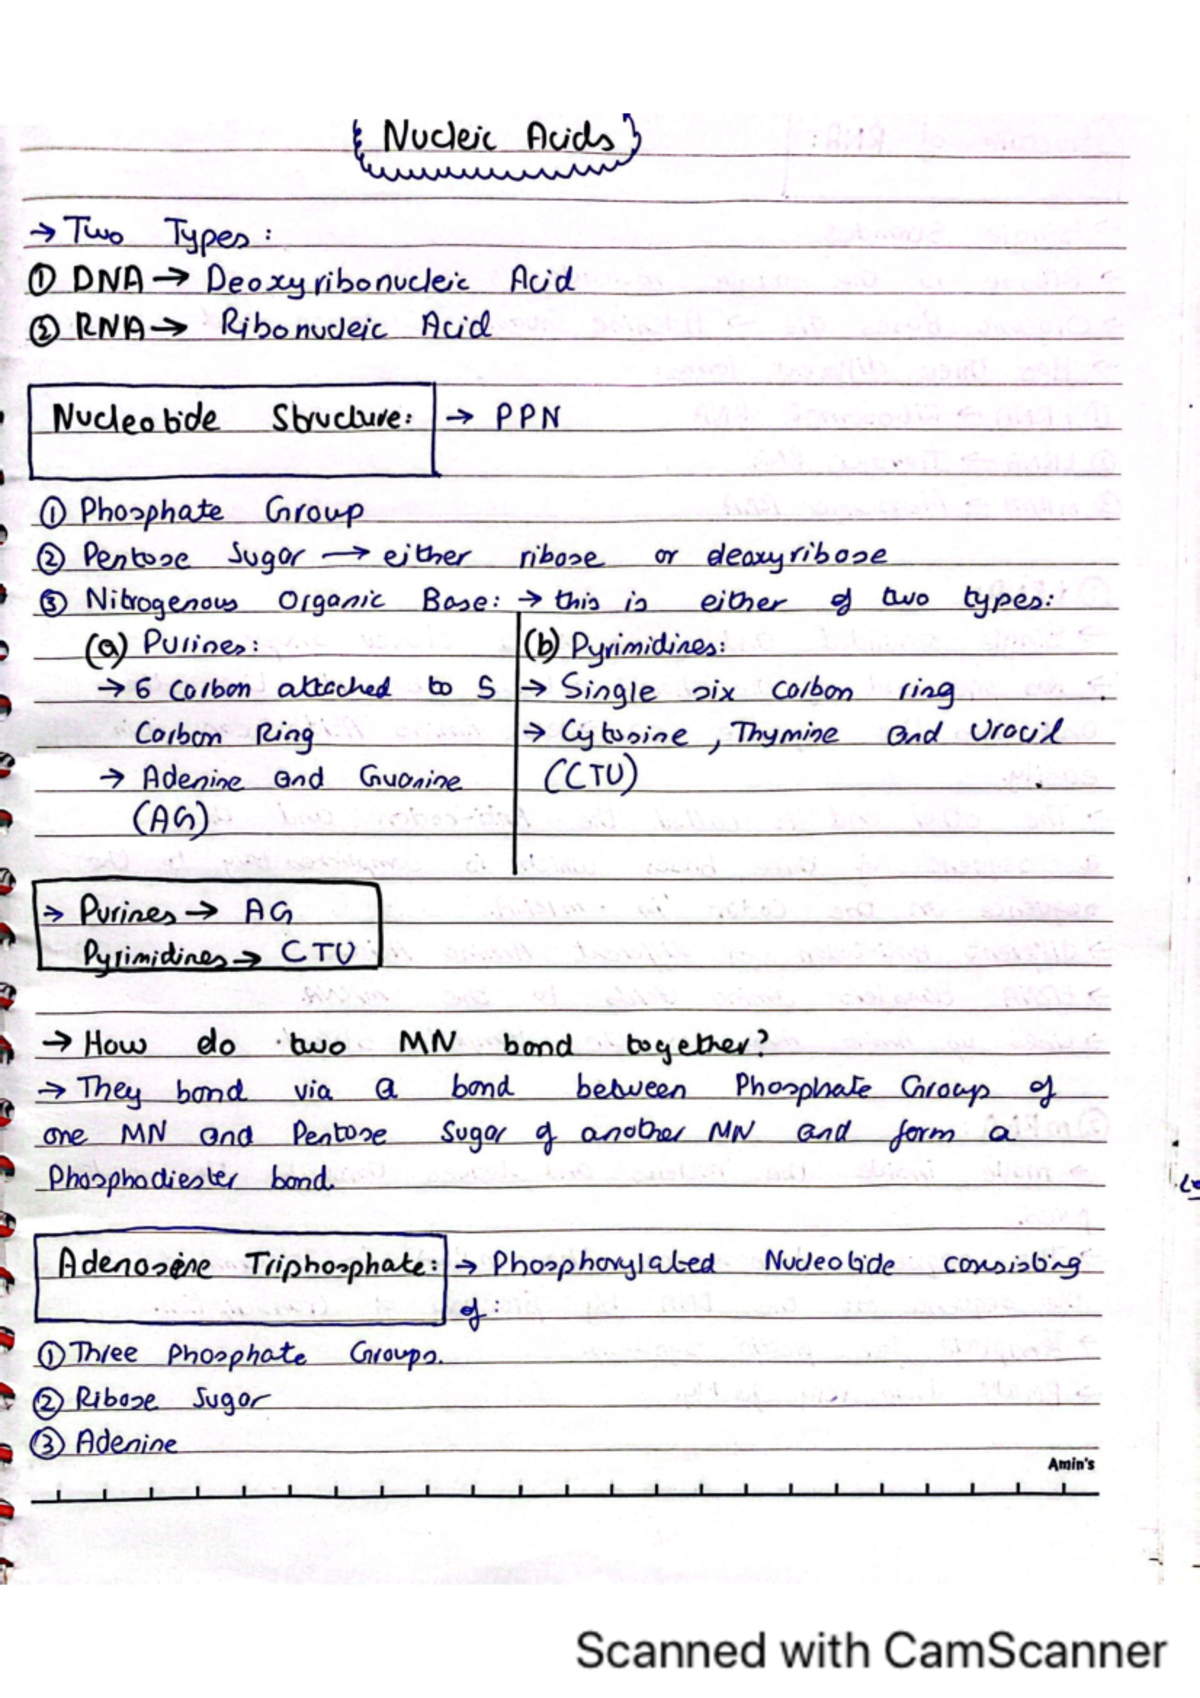 Nucleic Acids
→ Two Types:
① DNA → Deoxyribonucleic Acid
② RNA → Ribonucleic Acid
Nucleotide Structure: → PPN
① Phosphate Group
② Pentose Sugar → either ribose or deoxyribose
③ Nitrogenous Organic Base: → this is either of two types:
(a) Purines:
→ 6 Carbon attached to 5
Carbon Ring
→ Adenine and Guanine
(AG)
(b) Pyrimidines:
→ Single six carbon ring
→ Cytosine, Thymine and Uracil
(CTU)
→ Purines → AG
Pyrimidines → CTU
→ How do two MN bond together?
→ They bond via a bond between Phosphate Group of
one MN and Pentose Sugar of another MN and form a
Phosphodiester bond.
Adenosine Triphosphate: → Phosphorylated Nucleotide consisting
of:
① Three Phosphate Groups.
② Ribose Sugar
③ Adenine
Amin's
Scanned with CamScanner